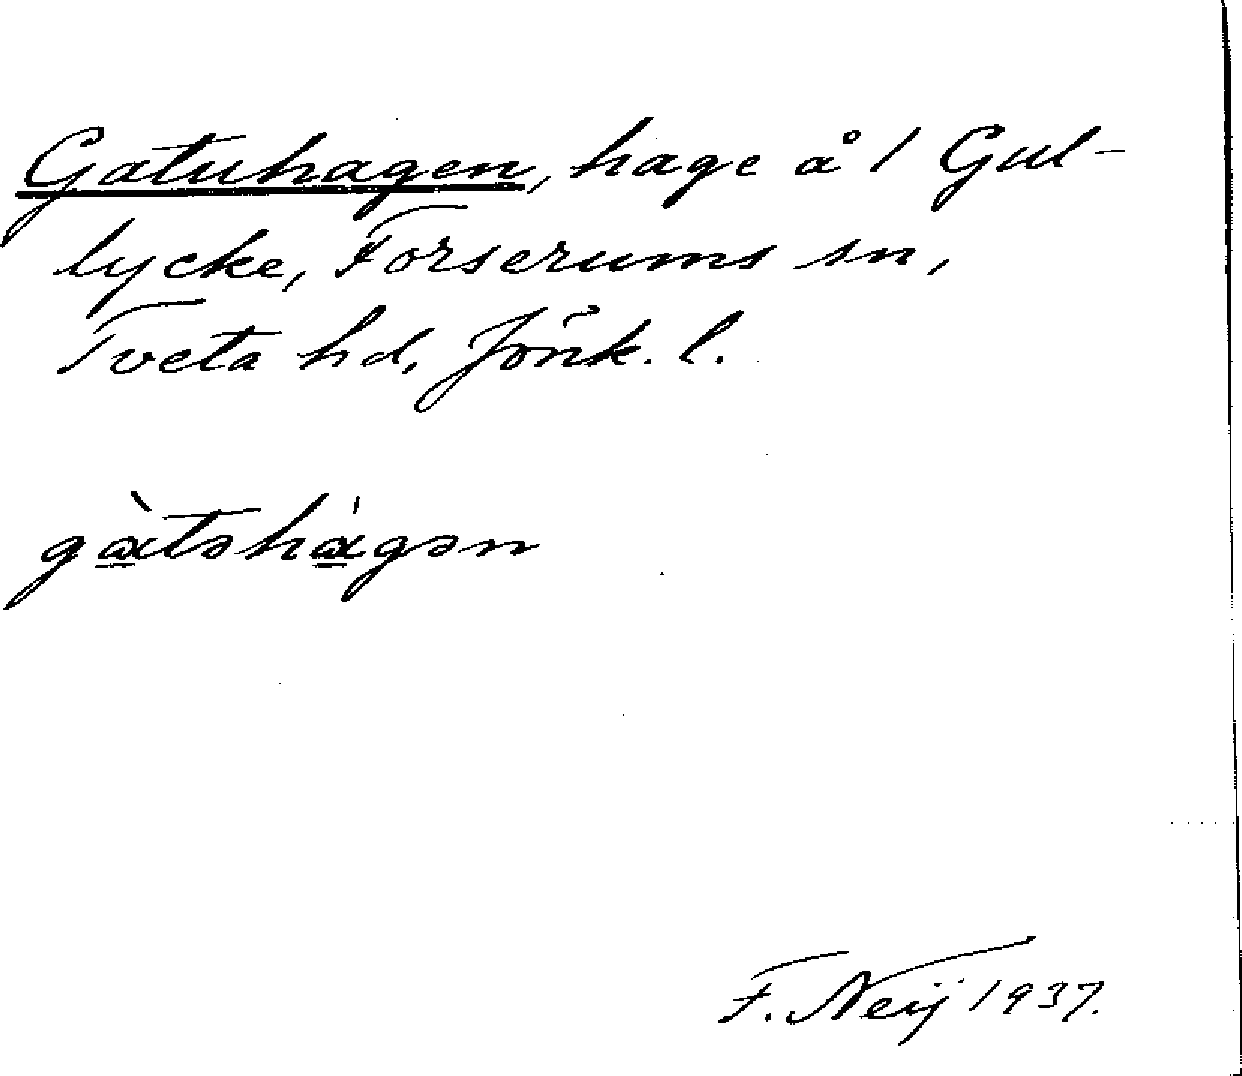 Gatuhagen, hage å 1 Gul-
lycke, Forserums sn,
Tveta hd, Jönk. l.
gàtəhágən
F. Neij 1937.